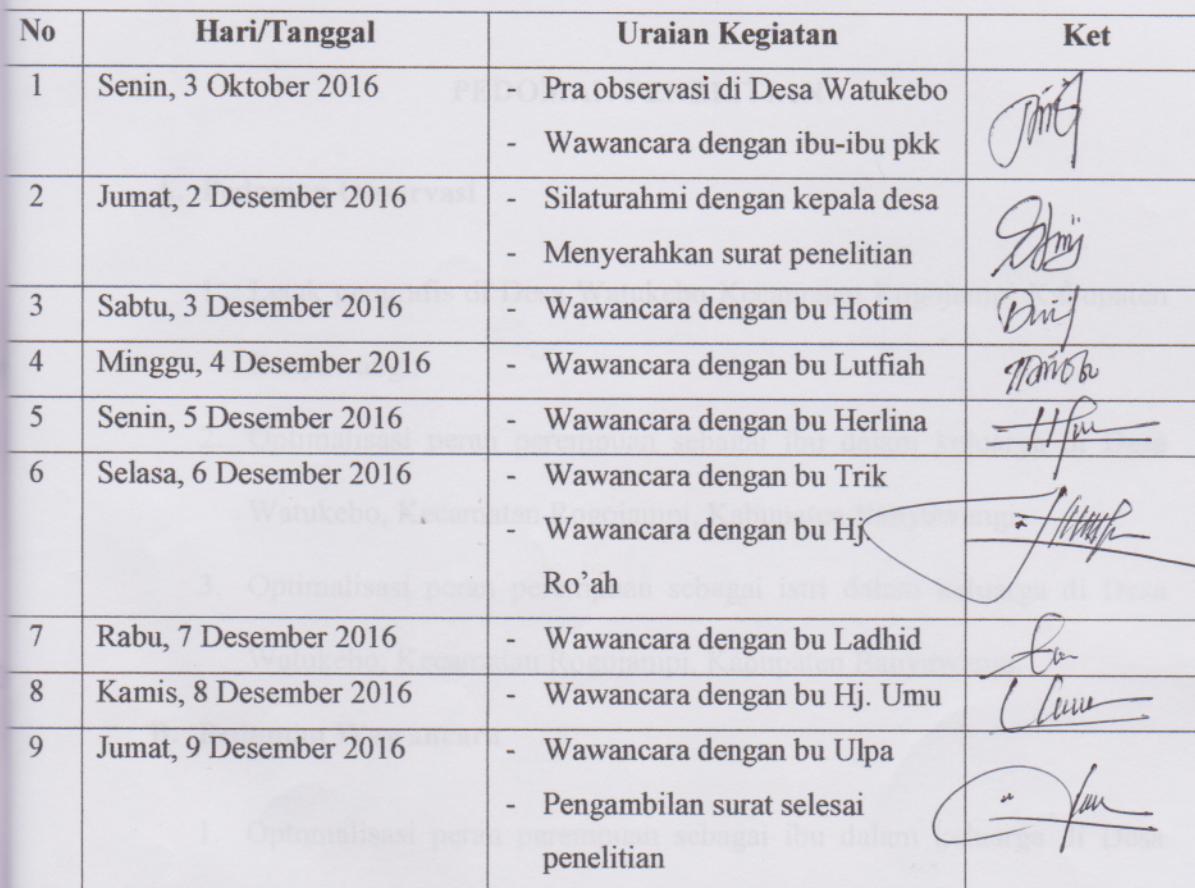 No Hari/Tanggal Uraian Kegiatan Ket
1 Senin, 3 Oktober 2016 - Pra observasi di Desa Watukebo
- Wawancara dengan ibu-ibu pkk
2 Jumat, 2 Desember 2016 - Silaturahmi dengan kepala desa
- Menyerahkan surat penelitian
3 Sabtu, 3 Desember 2016 - Wawancara dengan bu Hotim
4 Minggu, 4 Desember 2016 - Wawancara dengan bu Lutfiah
5 Senin, 5 Desember 2016 - Wawancara dengan bu Herlina
6 Selasa, 6 Desember 2016 - Wawancara dengan bu Trik
- Wawancara dengan bu Hj.
Ro'ah
7 Rabu, 7 Desember 2016 - Wawancara dengan bu Ladhid
8 Kamis, 8 Desember 2016 - Wawancara dengan bu Hj. Umu
9 Jumat, 9 Desember 2016 - Wawancara dengan bu Ulpa
- Pengambilan surat selesai
penelitian